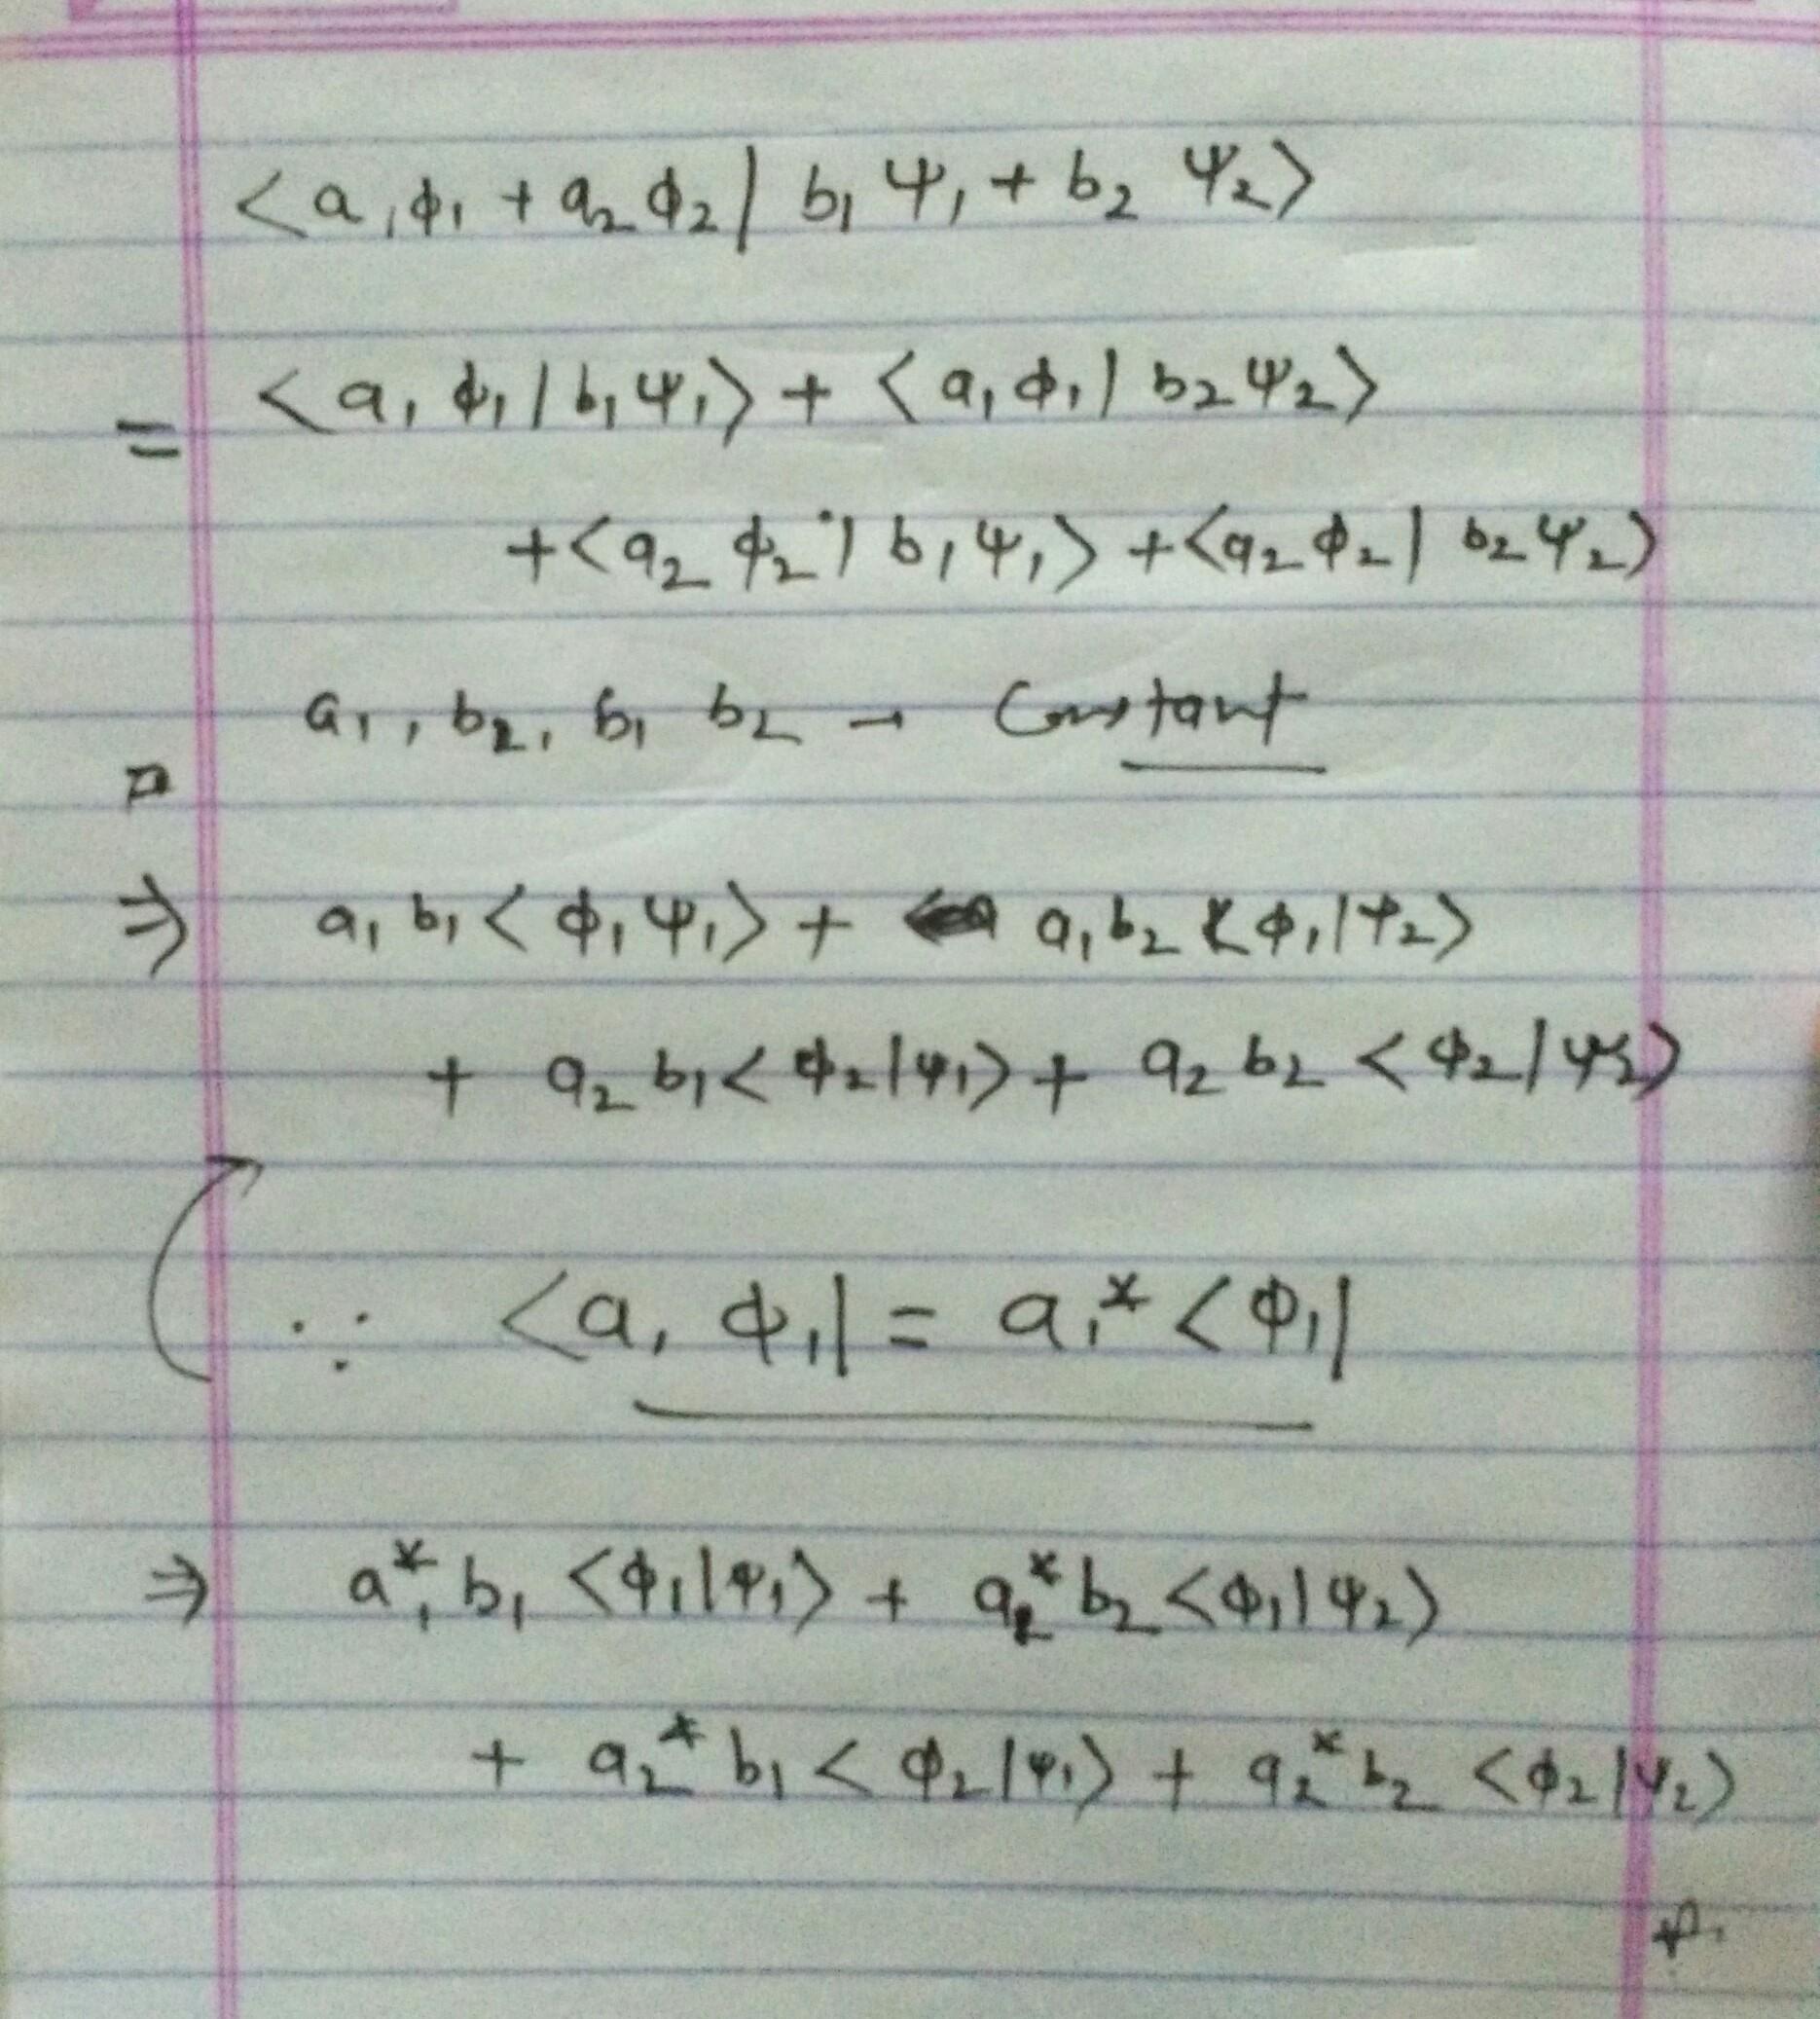 <a₁ϕ₁ + a₂ϕ₂ | b₁ψ₁ + b₂ ψ₂>
= <a₁ϕ₁ | b₁ψ₁> + <a₁ϕ₁ | b₂ψ₂>
+ <a₂ϕ₂ | b₁ψ₁> + <a₂ϕ₂ | b₂ψ₂>
a₁, b₂, b₁ b₂ → Constant
⇒ a₁b₁<ϕ₁ψ₁> + a₁b₂<ϕ₁|ψ₂>
+ a₂b₁<ϕ₂|ψ₁> + a₂b₂<ϕ₂|ψ₂>
∵ <a₁ϕ₁| = a₁*<ϕ₁|
⇒ a₁*b₁<ϕ₁|ψ₁> + a₂*b₂<ϕ₁|ψ₂>
+ a₂*b₁<ϕ₂|ψ₁> + a₂*b₂<ϕ₂|ψ₂>